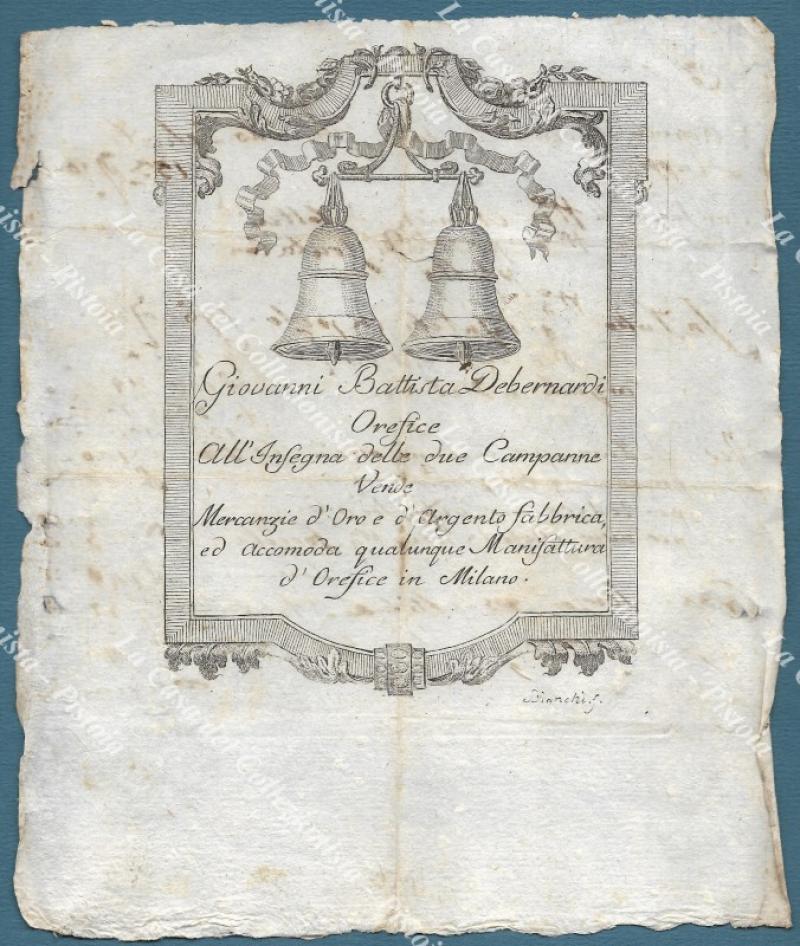 Giovanni Battista Debernardi
Orefice
All'Insegna delle due Campanne
Vende
Mercanzie d'Oro e d'Argento fabbrica,
ed accomoda qualunque Manifattura
d'Orefice in Milano.
Bianchi f.
La Casa del Collezionista - Pistoia